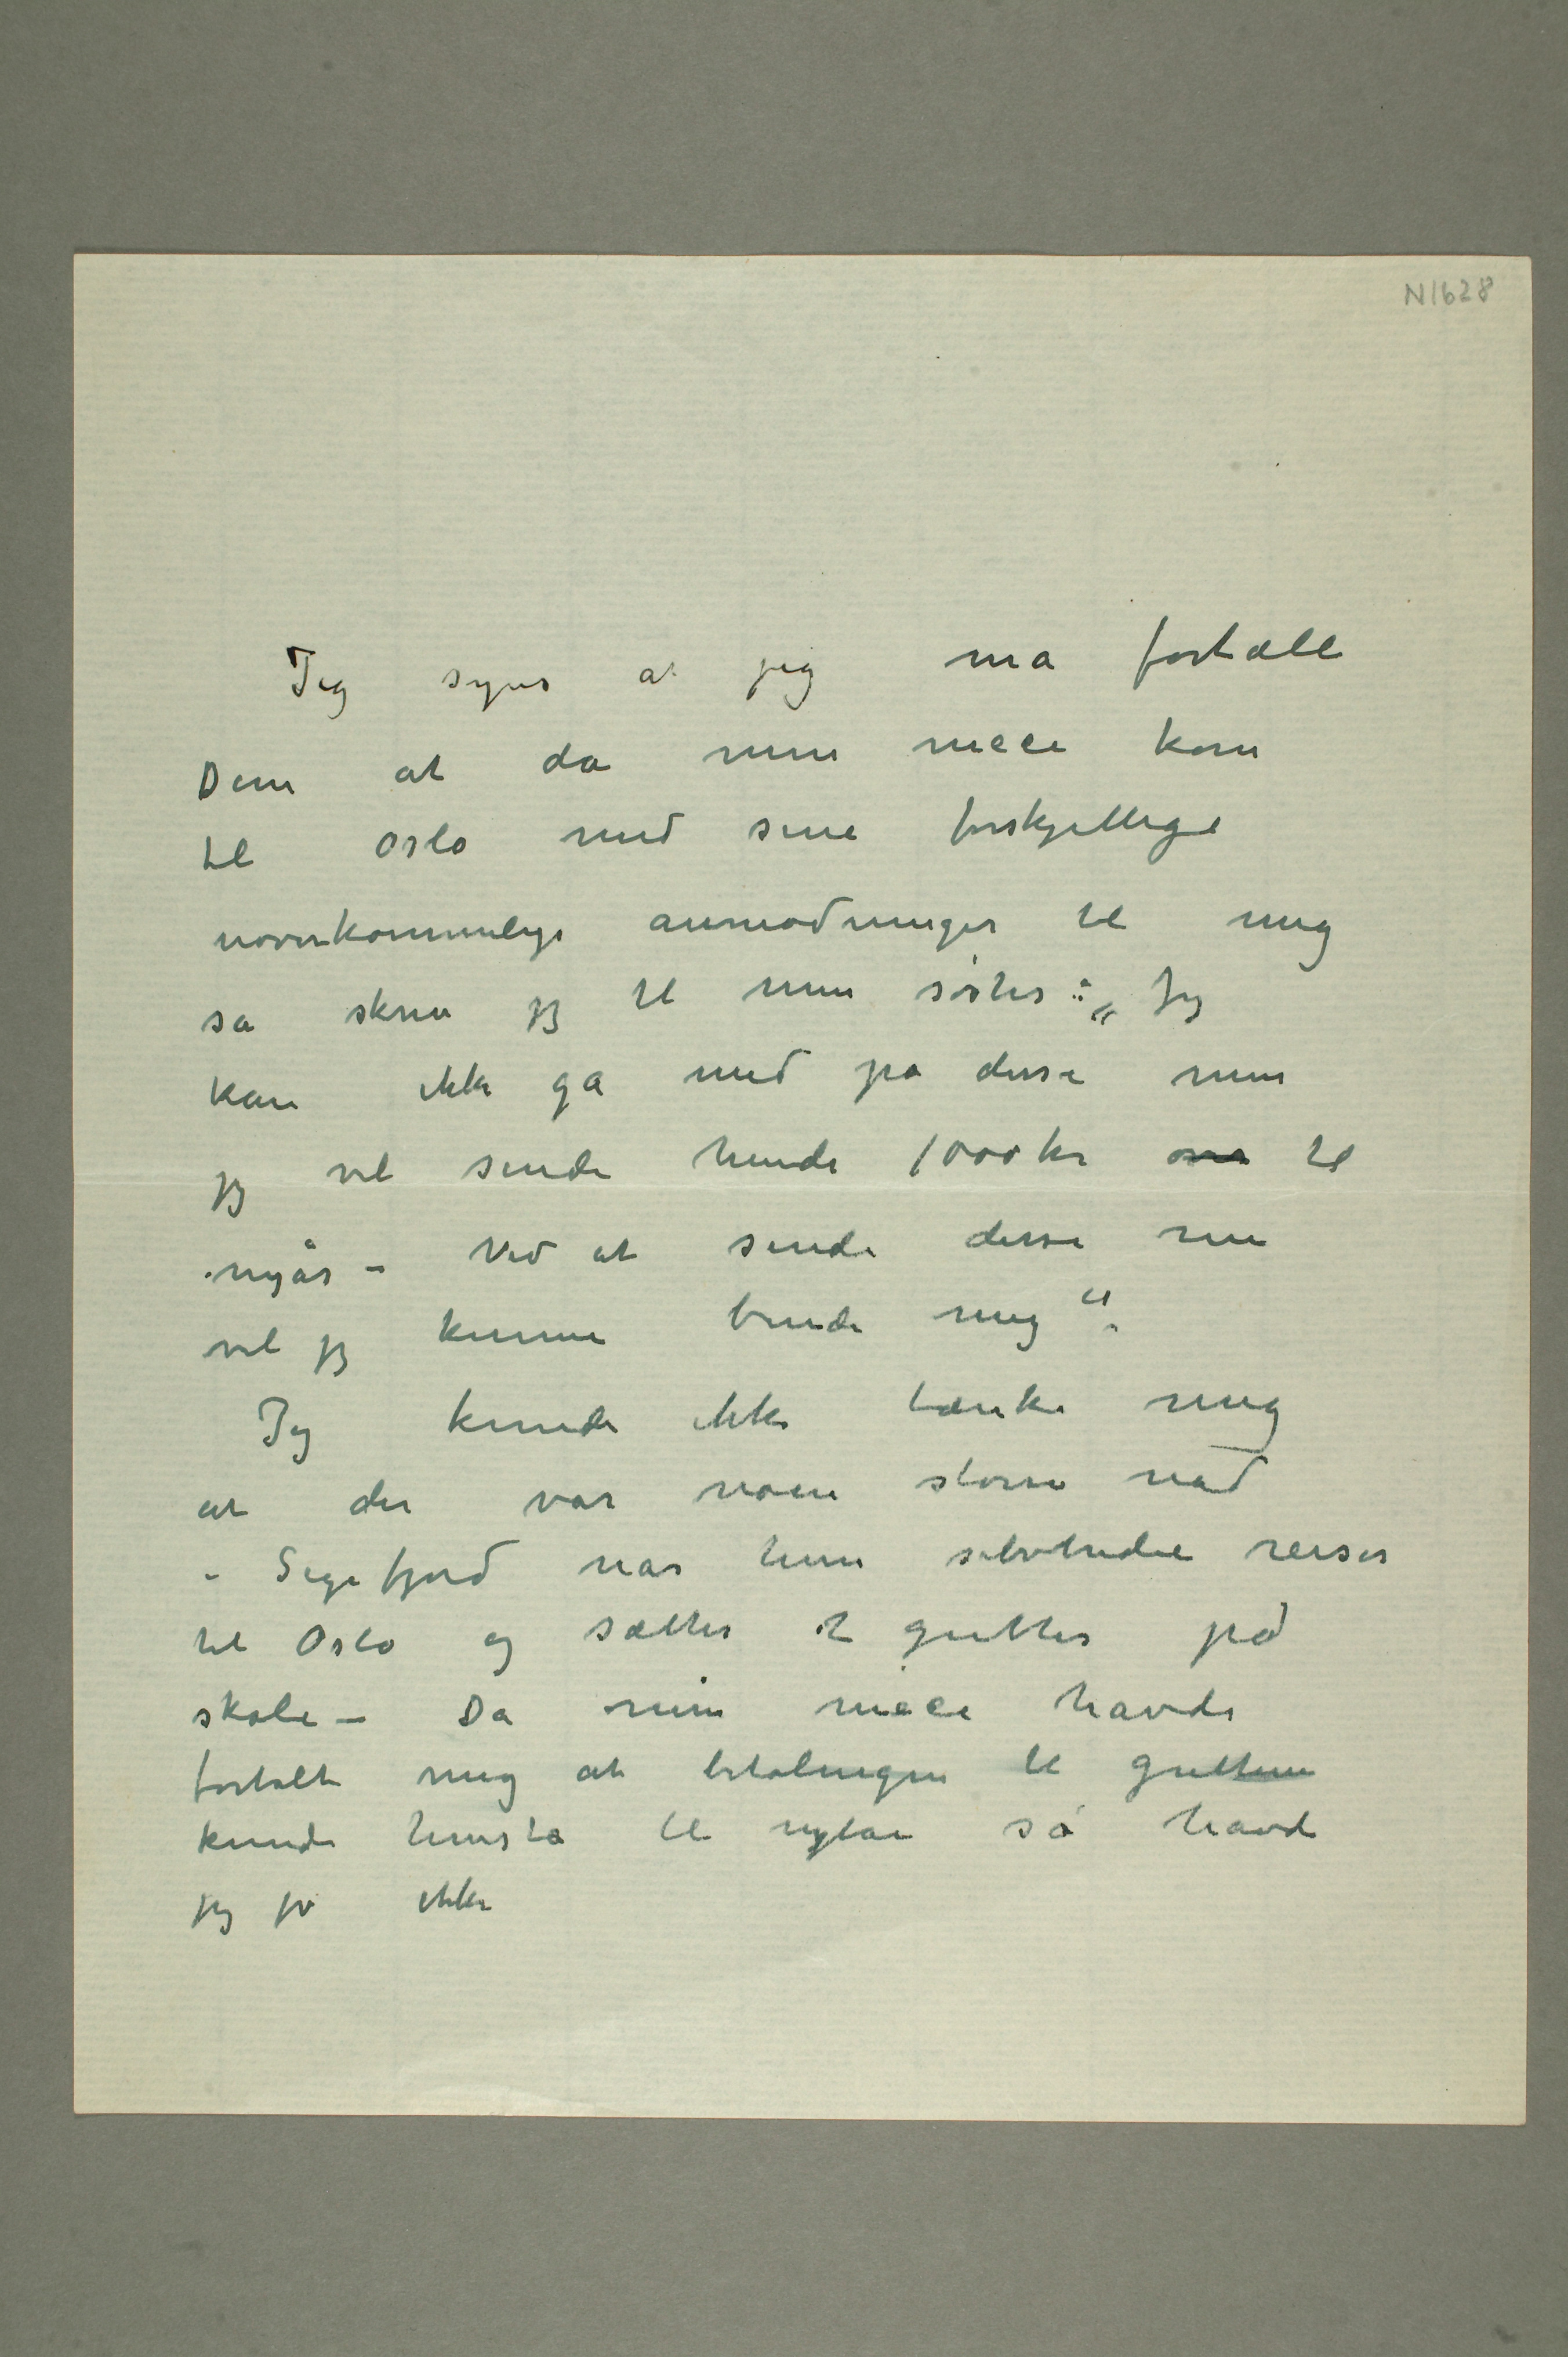 N1628
Jeg synes at jeg må fortælle
Dem at da min niece kom
til Oslo med sine forskjellige
uoverkommelige anmodninger til mig
så skrev jeg til min søster: „Jeg
kan ikke gå med på disse men
jeg vil sende hende 1000 kr over til
nyår – Ved at sende disse nu
vil jeg kunne binde mig“.
Jeg kunde ikke tænke mig
at der var noen større nød
i Sigefjord når hun selvtredie reiser
til Oslo og sætter 2 gutter på
skole – Da min niece havde
fortalt mig at betalingen til guttene
kunde henstå til nytår så havde
jeg jo ikke